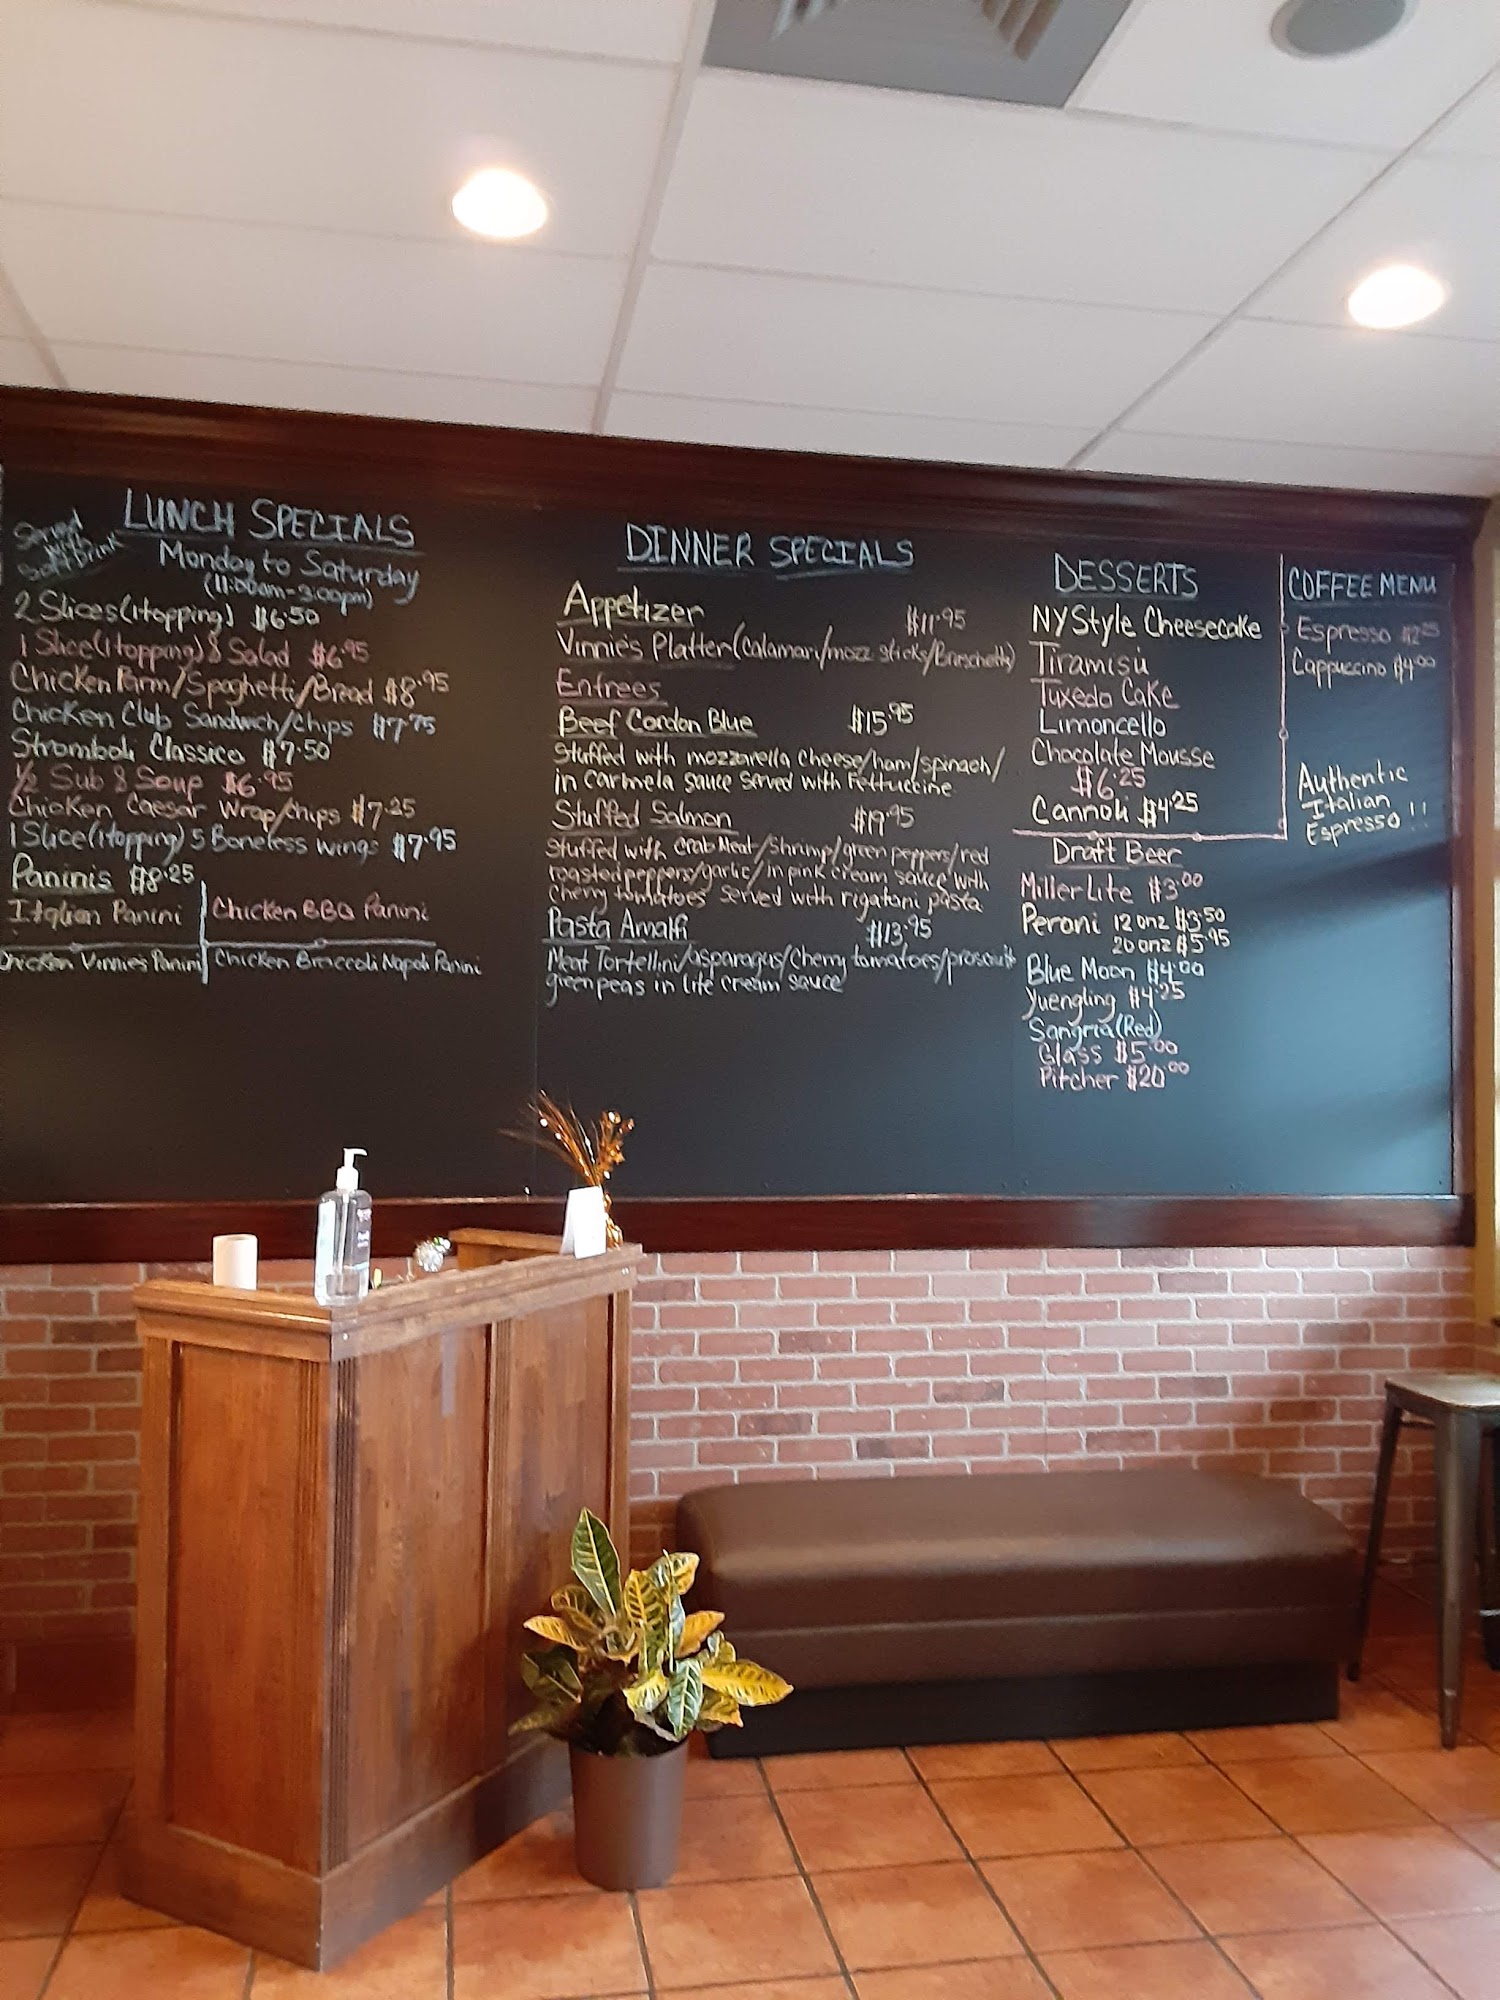 Served with Soft Drink
LUNCH SPECIALS
Monday to Saturday
(11:00am-3:00pm)
2 Slices(1topping) $6.50
1 Slice(1topping) & Salad $6.95
Chicken Parm/Spaghetti/Bread $8.95
Chicken Club Sandwich/Chips $7.75
Stromboli Classico $7.50
1/2 Sub & Soup $6.95
Chicken Caesar Wrap/chips $7.25
1 Slice(1topping) 5 Boneless wings $7.95
Paninis $8.25
Italian Panini
Chicken BBQ Panini
Chicken Vinnies Panini
Chicken Broccoli Napoli Panini
DINNER SPECIALS
Appetizer $11.95
Vinnie's Platter(Calamari/mozz sticks/Bruschetta)
Entrees
Beef Cordon Blue $15.95
Stuffed with mozzarella cheese/ham/spinach/
in Carmela sauce served with Fettuccine
Stuffed Salmon $19.95
Stuffed with Crab Meat/Shrimp/green peppers/red
roasted peppers/garlic/in pink cream sauce with
cherry tomatoes served with rigatoni pasta
Pasta Amalfi $13.95
Meat Tortellini/asparagus/Cherry tomatoes/
green peas in lite cream sauce
DESSERTS
NY Style Cheesecake
Tiramisù
Tuxedo Cake
Limoncello
Chocolate Mousse
$6.25
Cannoli $4.25
Draft Beer
Miller Lite $3.00
Peroni 12 onz $3.50
20 onz $5.95
Blue Moon $4.00
Yuengling $4.25
Sangria(Red)
Glass $5.00
Pitcher $20.00
COFFEE MENU
Espresso
Cappuccino $4.00
Authentic
Italian
Espresso!!